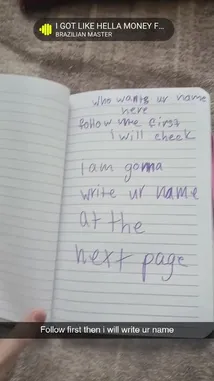 I GOT LIKE HELLA MONEY F...
BRAZILIAN MASTER
who wants ur name
here
follow me first
i will check
I am gonna
write ur name
at the
next page
Follow first then i will write ur name